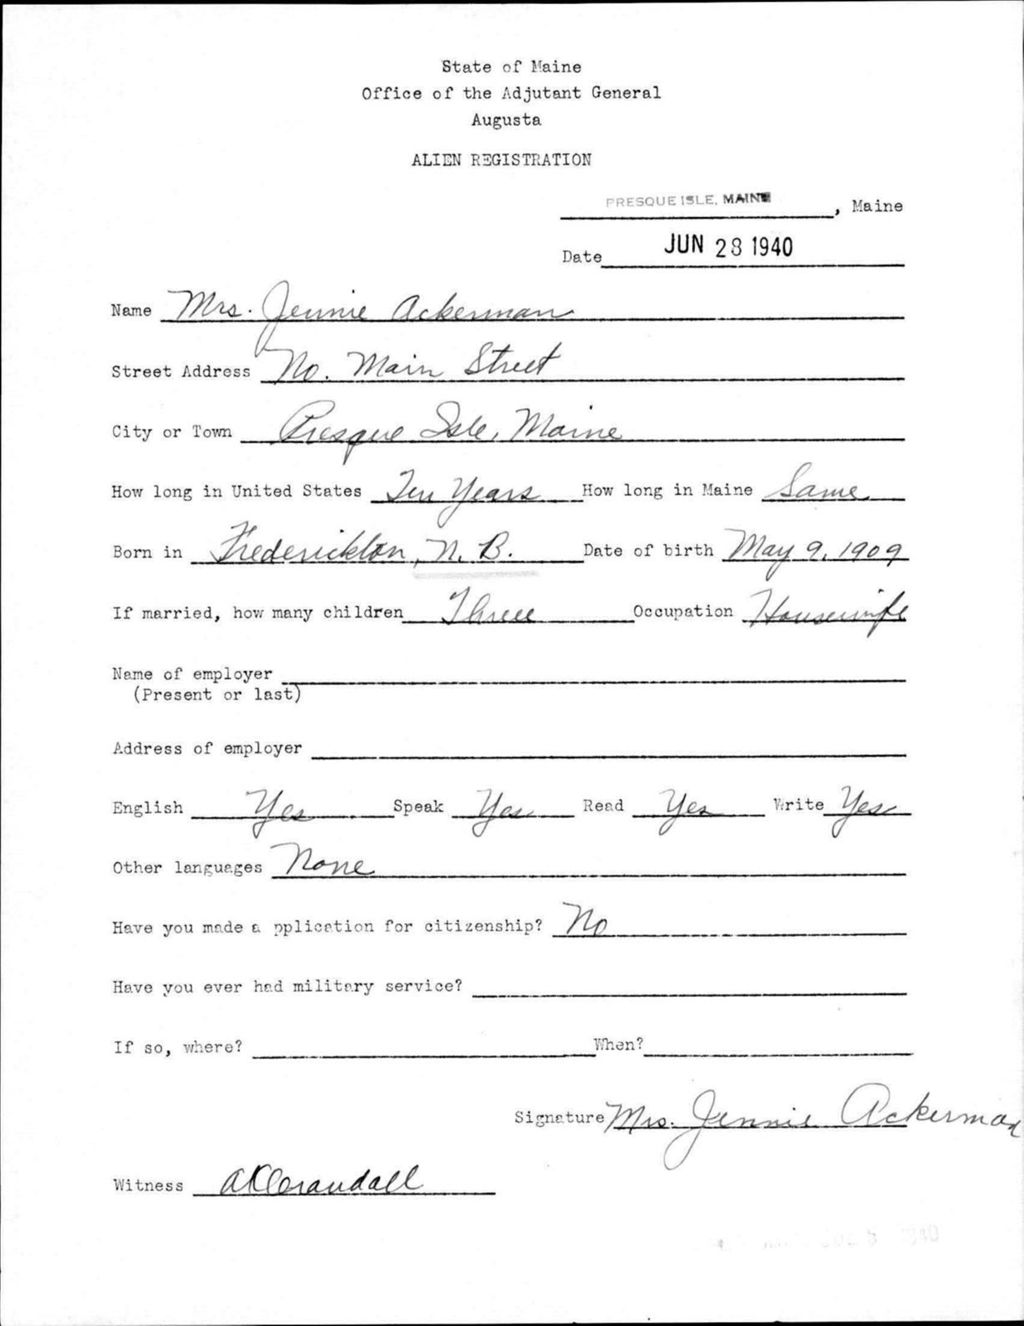 State of Maine
Office of the Adjutant General
Augusta
ALIEN REGISTRATION
PRESQUE ISLE, MAINE, Maine
Date JUN 28 1940
Name Mrs. Jennie Ackerman
Street Address No. Main Street
City or Town Presque Isle, Maine
How long in United States Ten Years How long in Maine Same
Born in Fredericklon, N. B. Date of birth May 9, 1909
If married, how many children Three Occupation Housewife
Name of employer
(Present or last)
Address of employer
English Yes Speak Yes Read Yes Write Yes
Other languages None
Have you made a pplication for citizenship? No
Have you ever had military service?
If so, where? When?
Signature Mrs. Jennie Ackerman
Witness A K Crandall